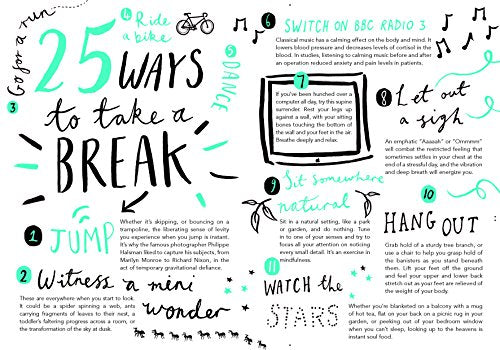 Go for a run
3
25 WAYS
to take a
BREAK
4 Ride
a
bike
5 DANCE
1 JUMP
Whether it's skipping, or bouncing on a
trampoline, the liberating sense of levity
you experience when you jump is instant.
It's why the famous photographer Philippe
Halsman liked to capture his subjects, from
Marilyn Monroe to Richard Nixon, in the
act of temporary gravitational defiance.
2 Witness a mini
wonder
These are everywhere when you start to look.
It could be a spider spinning a web, ants
carrying fragments of leaves to their nest, a
toddler's faltering progress across a room, or
the transformation of the sky at dusk.
6 SWITCH ON BBC RADIO 3
Classical music has a calming effect on the body and mind. It
lowers blood pressure and decreases levels of cortisol in the
blood. In studies, listening to calming music before and after
an operation reduced anxiety and pain levels in patients.
7
If you've been hunched over a
computer all day, try this supine
surrender. Rest your legs up
against a wall, with your sitting
bones touching the bottom of
the wall and your feet in the air.
Breathe deeply and relax.
8 Let out
a sigh
An emphatic "Aaaaah" or "Ommmm"
will combat the restricted feeling that
sometimes settles in your chest at the
end of a stressful day, and the vibration
and deep breath will energize you.
9 Sit somewhere
natural
Sit in a natural setting, like a park
or garden, and do nothing. Tune
in to one of your senses and try to
focus all your attention on noticing
every small detail. It's an exercise in
mindfulness.
10
HANG OUT
Grab hold of a sturdy tree branch, or
use a chair to help you grasp hold of
the banisters as you stand beneath
them. Lift your feet off the ground
and feel your upper and lower back
stretch out as your feet are relieved of
the weight of your body.
11
WATCH the
STARS
Whether you're blanketed on a balcony with a mug
of hot tea, flat on your back on a picnic rug in your
garden, or peeking out of your bedroom window
when you can't sleep, looking up to the heavens is
instant soul food.